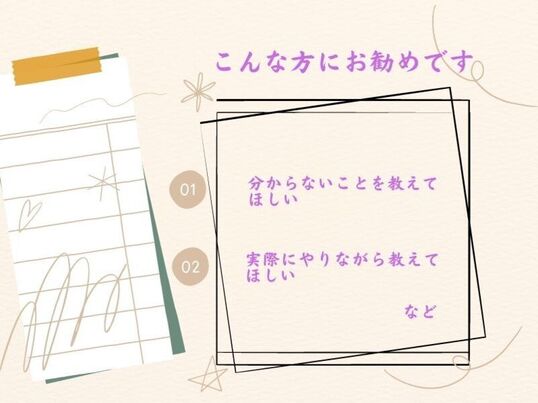 こんな方にお勧めです
01
分からないことを教えて
ほしい
02
実際にやりながら教えて
ほしい
など